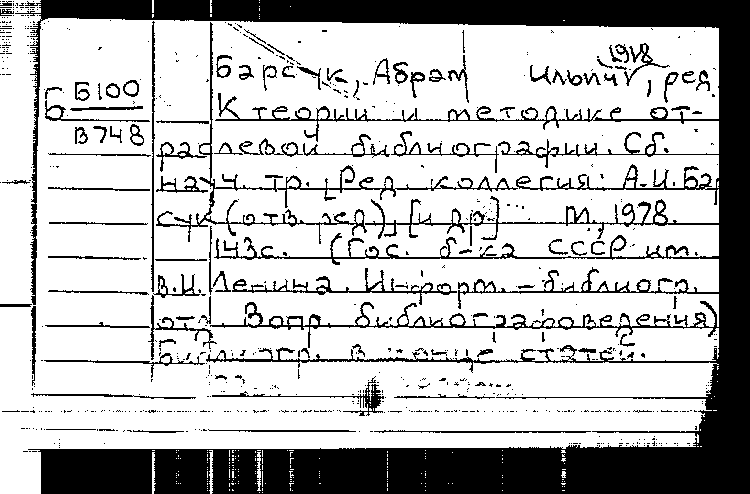 1918
Барсук, Абрам Ильич, ред.
Б Б100
К теории и методике от-
В748
раслевой библиографии. Сб.
науч. тр. [Ред. коллегия: А.И. Бар
сук (отв. ред.)] [и др.] М., 1978.
143с. (Гос. б-ка СССР им.
В.И. Ленина. Информ.-библиогр.
отд. Вопр. библиографоведения)
Библиогр. в конце статей.